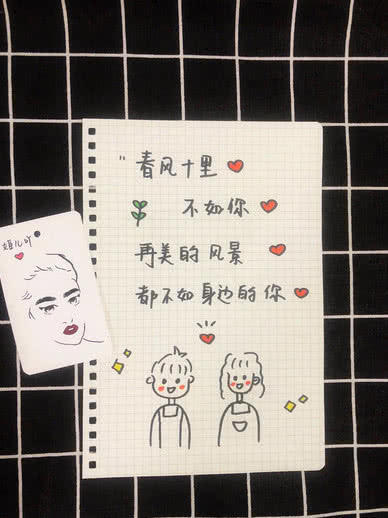 "春风十里
不如你
再美的风景
都不如身边的你